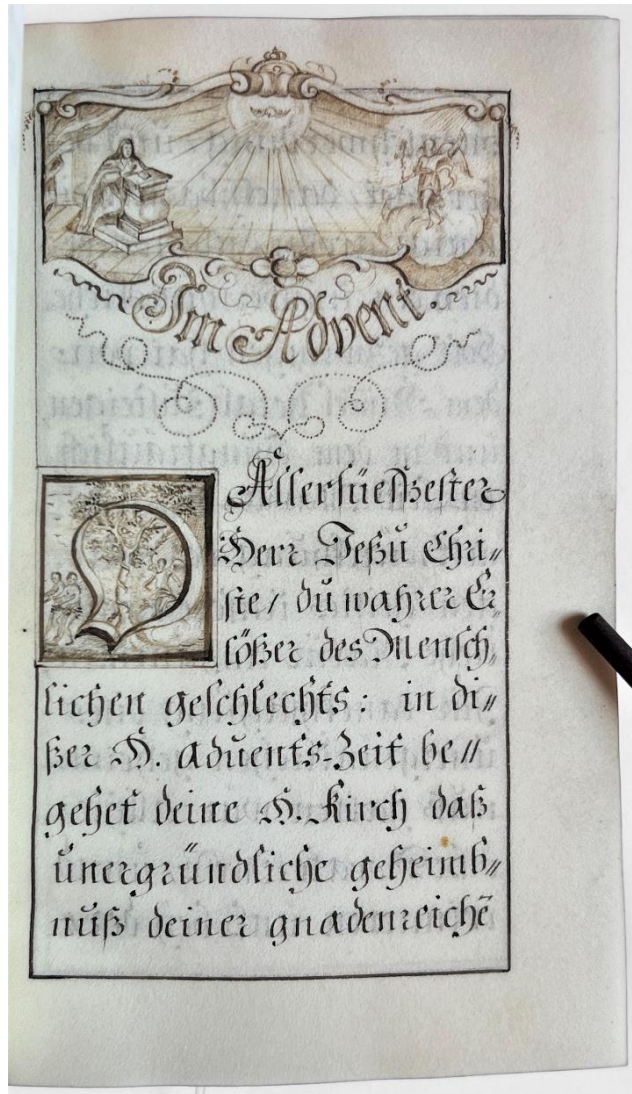 Im Advent.
O Allersüeßester
Herr Jeßu Chri„
ste / du wahrer Er„
lößer des Mensch„
lichen geschlechts: in di„
ßer H. advents-Zeit be„
gehet deine H. Kirch daß
unergründliche geheimb„
nuß deiner gnadenreichẽ